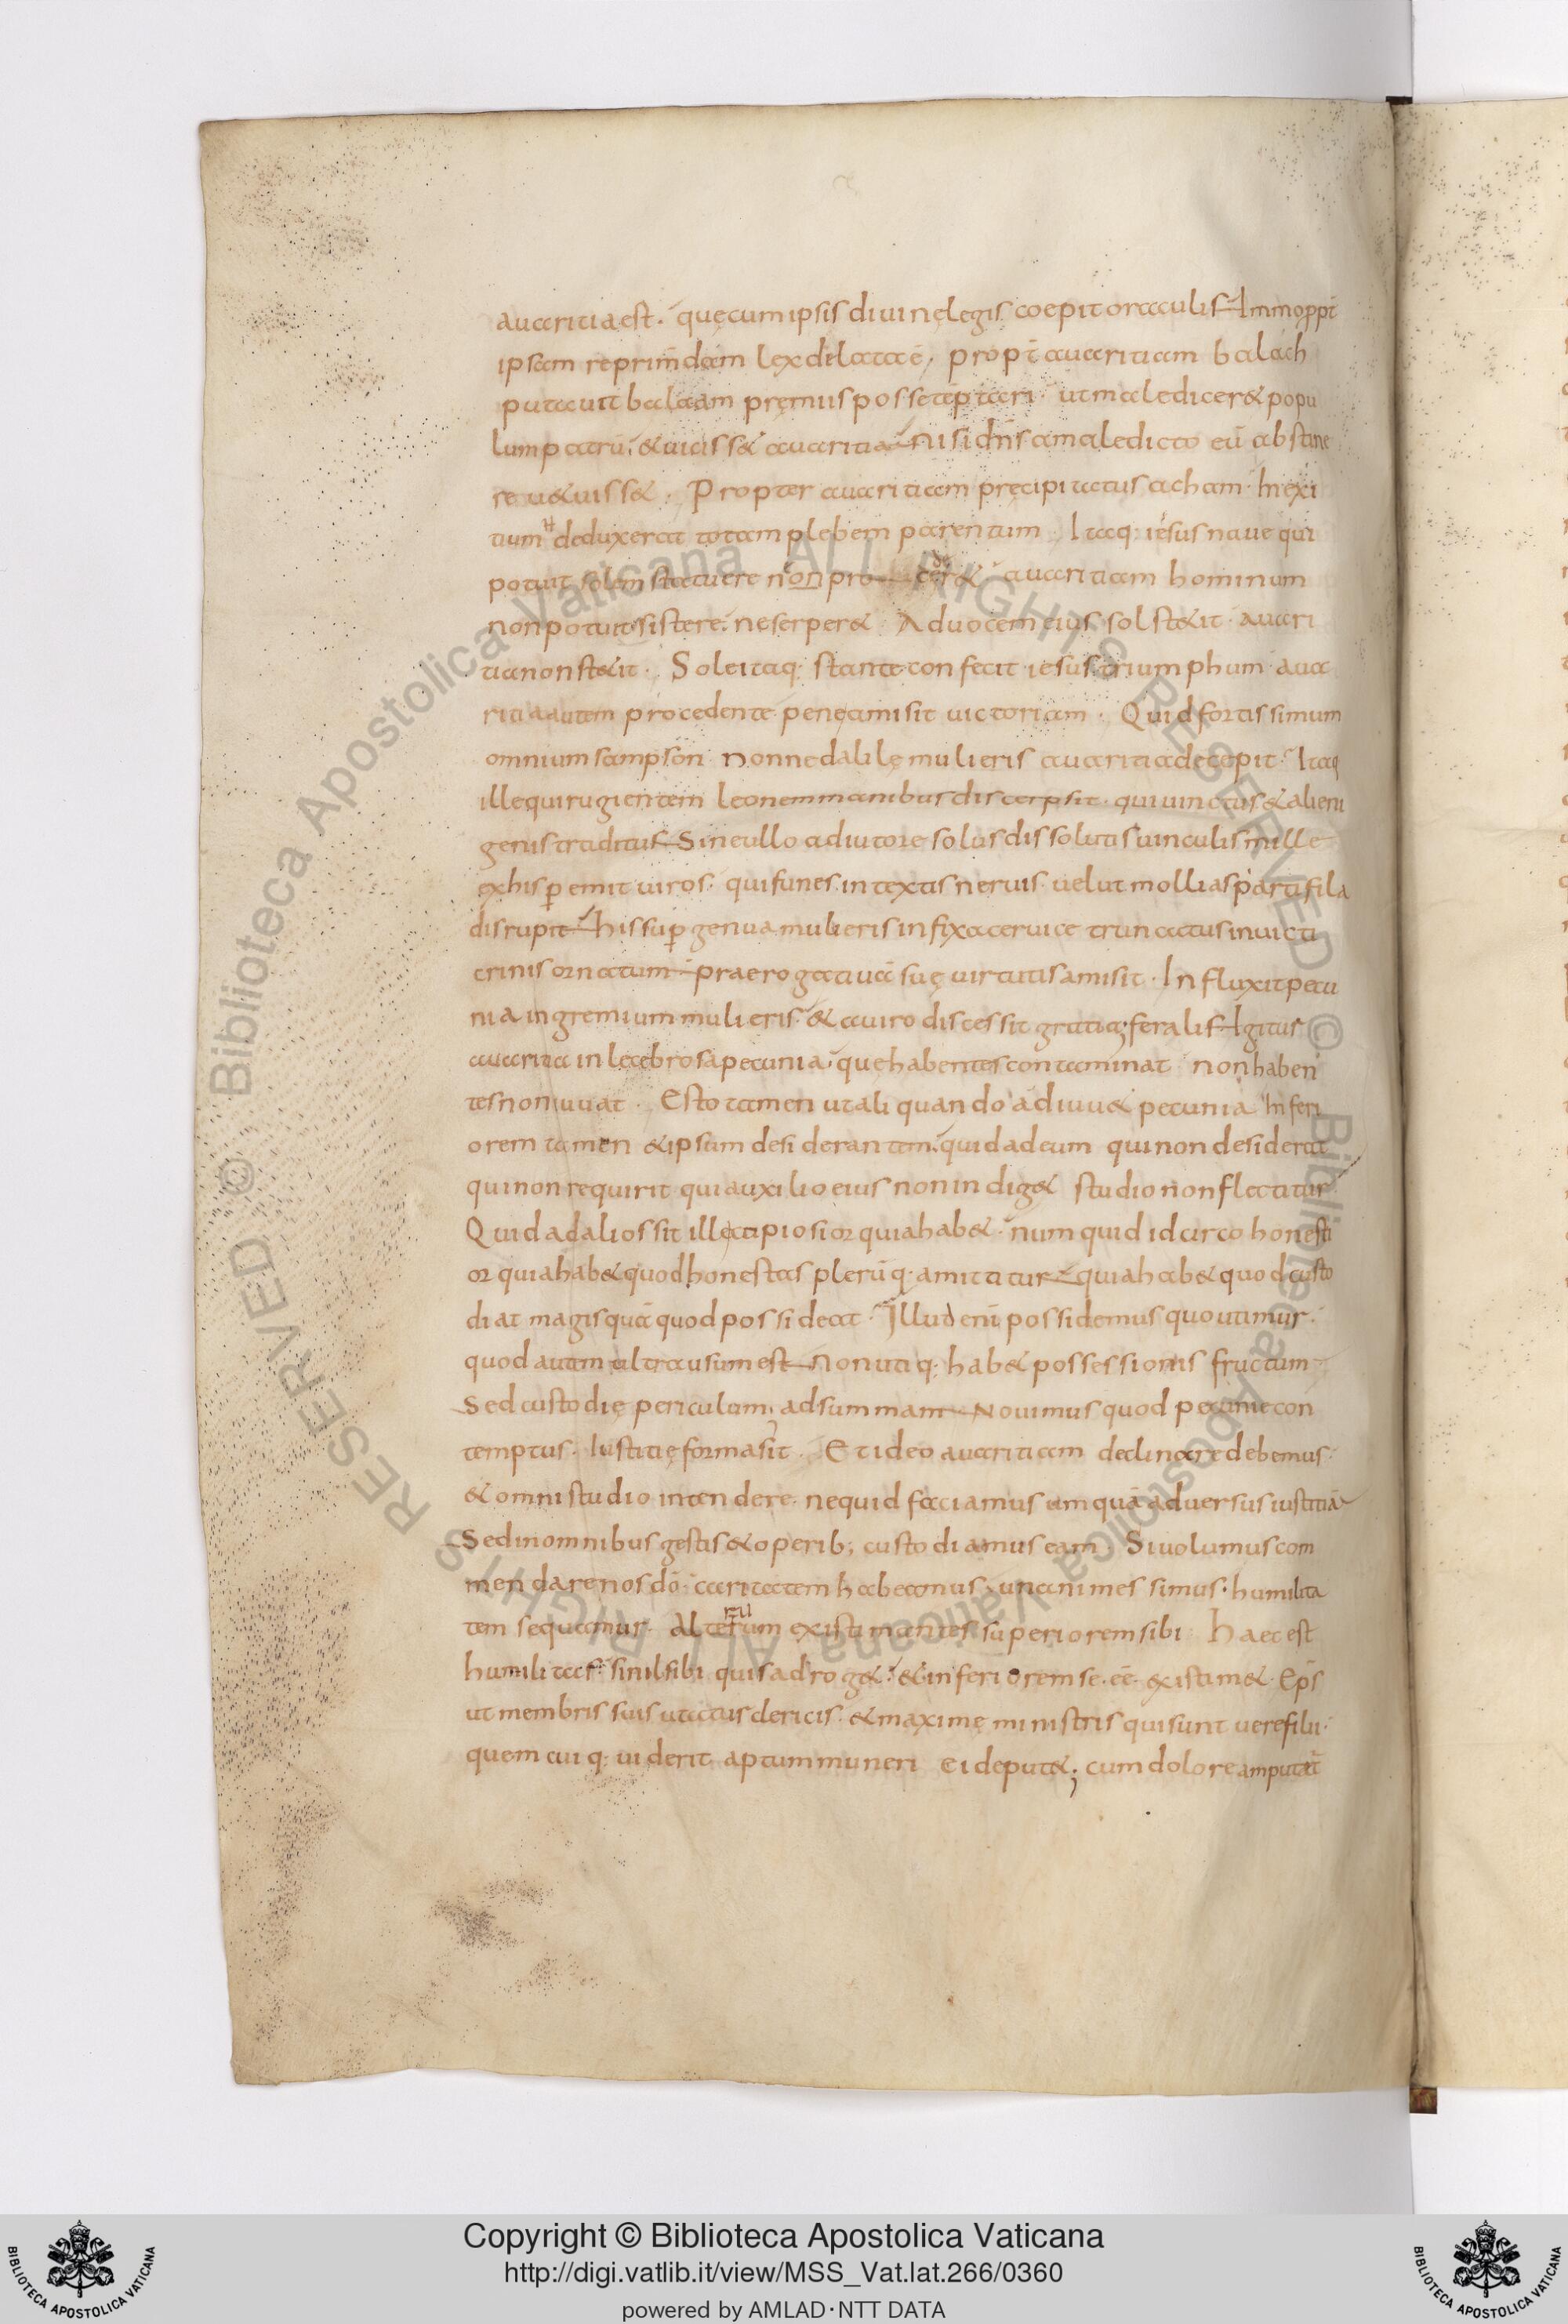 auaritia est. quę cum ipsis diuinę legis coepit oraculis Immo ppt̄
ipsam reprimendam lex dilata ē. propt̄ auaritiam balach
putauit balaam pręmiis posse tēptari. ut maledicer& popu
lum patrū. & uicisse& auaritia Nisi dn̄s a maledicto eū abstine
re u&uiss&. Propter auaritiam pręcipitatus acham. In exi
tium deduxerat totam plebem parentum. Itaq: iesus naue qui
potuit solem statuere non
auaritiam hominum
non potuit sistere. ne serper& Ad uocem eius sol st&it. auari
tia non st&it. Sole itaq: stante confecit iesus triumphum. aua
ritia autem procedente penę amisit uictoriam. Quid fortissimum
omnium sampson. Nonne dalilę mulieris auaritia decepit. Itaq
ille qui rugientem leonem manibus discerpsit. qui uinctus & alieni
genis traditus Sine ullo adiutore solus dissolutis uinculis mille
ex his p̄emit uiros. qui funes intextis neruis uelut mollia sparti fila
disrupit his sup̄ genua mulieris infixa ceruice truncatus inuicti
crinis ornatum praerogatiuā suę uirtutis amisit. Influxit pecu
nia in gremium mulieris. & a uiro discessit gratia; feralis Igitur
auaritia inlecebrosa pecunia. quę habentes contaminat non haben
tes non iuuat. Esto tamen ut aliquando adiuu& pecunia Inferi
orem tamen & ipsum desiderantem. quid ad eum qui non desiderat
qui non requirit qui auxilio eius non indig& studio non flectitur
Quid ad alios sit ille
quia hab&. num quid idcirco honesti
or quia hab& quod honestas plerūq: amittitur quia hab& quod custo
diat magis quā quod possideat. Illud eni possidemus quo utimur.
quod autem ultra usum est Non utiq: hab& possessionis fructum
Sed custodię periculum. ad summam Nouimus quod pecunie con
temptus. Iustitię forma sit. Et ideo auaritiam declinare debemus.
& omni studio intendere. ne quid faciamus umquā aduersus iustitiā
Sed in omnibus gestis & operib; custodiamus eam. Si uolumus com
mendare nos dō. caritatem habeamus. unanimes simus. humilita
tem sequamur. Alterum
ru
existimantes superiorem sibi. Haec est
humilitas. si nil sibi quis adrog&. & inferiorem se. eē. existim&. Ep̄s
ut membris suis utatur clericis. & maximę ministris qui sunt uere filii.
quem cuiq: uiderit aptum muneri ei deput&; cum dolore amputat̄
Copyright © Biblioteca Apostolica Vaticana
http://digi.vatlib.it/view/MSS_Vat.lat.266/0360
powered by AMLAD·NTT DATA
BIBLIOTECA APOSTOLICA VATICANA
BIBLIOTECA APOSTOLICA VATICANA